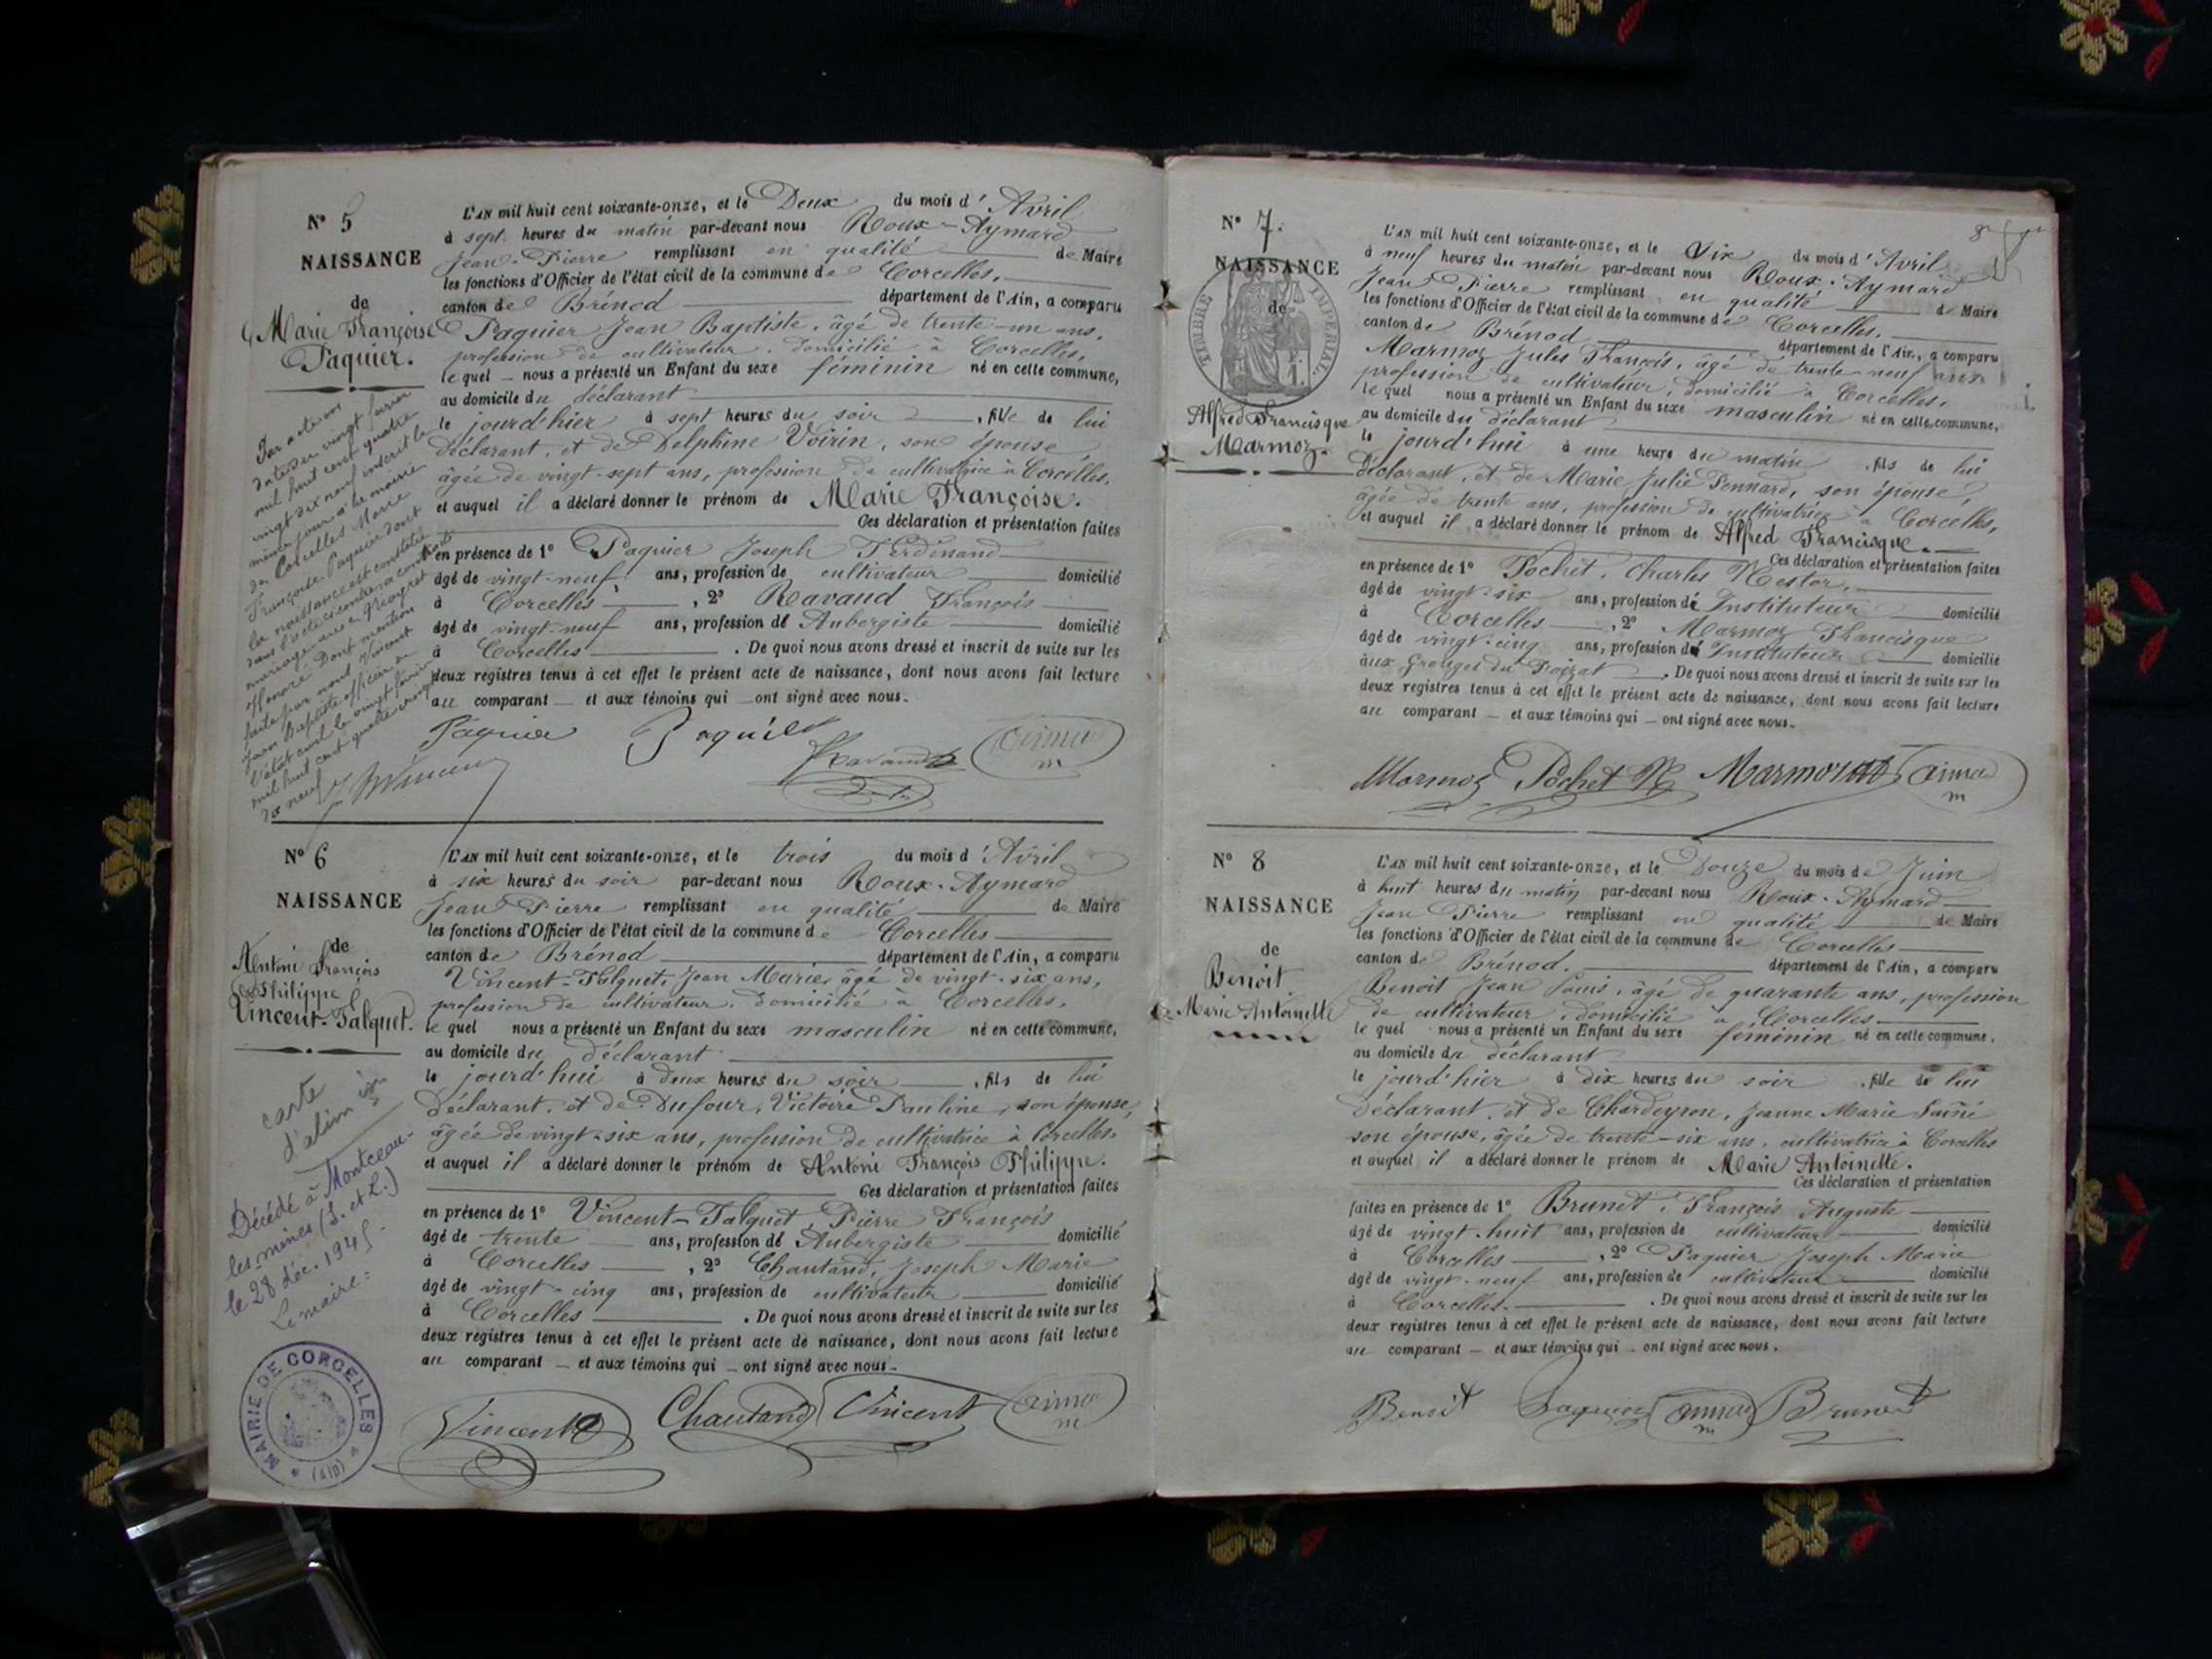 N° 5
NAISSANCE
de
Marie Françoise
Paquier.
L'AN mil huit cent soixante-onze, et le Deux du mois d'Avril
à sept heures du matin par-devant nous Roux-Aymard
Jean-Pierre remplissant en qualité de Maire
les fonctions d'Officier de l'état civil de la commune de Corcelles,
canton de Brénod département de l'Ain, a comparu
Paquier Jean Baptiste, âgé de trente-un ans,
profession de cultivateur, domicilié à Corcelles,
lequel nous a présenté un Enfant du sexe féminin né en cette commune,
au domicile du déclarant
le jourd'hier à sept heures du soir, fille de lui
déclarant, et de Delphine Voirin, son épouse
âgée de vingt-sept ans, profession de cultivatrice à Corcelles,
et auquel il a déclaré donner le prénom de Marie Françoise.
Ces déclaration et présentation faites
en présence de 1° Paquier Joseph Ferdinand
âgé de vingt-neuf ans, profession de cultivateur domicilié
à Corcelles, 2° Ravaud François
âgé de vingt-neuf ans, profession de Aubergiste domicilié
à Corcelles. De quoi nous avons dressé et inscrit de suite sur les
deux registres tenus à cet effet le présent acte de naissance, dont nous avons fait lecture
au comparant et aux témoins qui ont signé avec nous.
Par acte en
date du vingt fevrier
mil huit cent quatre
vingt dix neuf inscrit le
même jour à la mairie
de Corcelles Marie
Françoise Paquier dont
la naissance est constatée
dans l'acte ci contre a contracté
mariage avec
Honoré. Dont mention
faite par nous Vincent
Jean Baptiste officier de
l'état civil le vingt fevrier
mil huit cent quatre vingt
dix neuf
Paquier Paquier Ravaud aimard
m
N° 6
NAISSANCE
de
Antoni François
Philippe
Vincent-Falquet.
L'AN mil huit cent soixante-onze, et le trois du mois d'Avril
à six heures du soir par-devant nous Roux-Aymard
Jean Pierre remplissant en qualité de Maire
les fonctions d'Officier de l'état civil de la commune de Corcelles
canton de Brénod département de l'Ain, a comparu
Vincent-Falquet, Jean Marie, âgé de vingt-six ans,
profession de cultivateur, domicilié à Corcelles,
lequel nous a présenté un Enfant du sexe masculin né en cette commune,
au domicile du déclarant
le jourd'hui à deux heures du soir, fils de lui
déclarant, et de Dufour, Victoire Pauline, son épouse,
âgée de vingt-six ans, profession de cultivatrice à Corcelles,
et auquel il a déclaré donner le prénom de Antoni François Philippe.
Ces déclaration et présentation faites
en présence de 1° Vincent-Falquet, Pierre François
âgé de trente ans, profession de Aubergiste domicilié
à Corcelles, 2° Chautand, Joseph Marie
âgé de vingt-cinq ans, profession de cultivateur domicilié
à Corcelles. De quoi nous avons dressé et inscrit de suite sur les
deux registres tenus à cet effet le présent acte de naissance, dont nous avons fait lecture
au comparant et aux témoins qui ont signé avec nous.
carte
d'alim on
Décédé à Montceau-
les-mines (S. et L.)
le 28 déc. 1945.
Le maire:
MAIRIE DE CORCELLES
(AIN)
Vincent Chautand Vincent aimard
m
N° 7.
NAISSANCE
de
TIMBRE IMPERIAL
Alfred Francisque
Marmoz.
L'AN mil huit cent soixante-onze, et le six du mois d'Avril
à neuf heures du matin par-devant nous Roux-Aymard
Jean Pierre remplissant en qualité de Maire
les fonctions d'Officier de l'état civil de la commune de Corcelles,
canton de Brénod département de l'Ain, a comparu
Marmoz Jules François, âgé de trente-neuf ans
profession de cultivateur, domicilié à Corcelles,
lequel nous a présenté un Enfant du sexe masculin né en cette commune,
au domicile du déclarant
le jourd'hui à une heure du matin, fils de lui
déclarant, et de Marie Julie Ponnard, son épouse,
âgée de trente ans, profession de cultivatrice à Corcelles,
et auquel il a déclaré donner le prénom de Alfred Francisque.
Ces déclaration et présentation faites
en présence de 1° Pochet, Charles Nestor,
âgé de vingt-six ans, profession de Instituteur domicilié
à Corcelles, 2° Marmoz Francisque
âgé de vingt-cinq ans, profession de Instituteur domicilié
aux Granges du Poizat. De quoi nous avons dressé et inscrit de suite sur les
deux registres tenus à cet effet le présent acte de naissance, dont nous avons fait lecture
au comparant et aux témoins qui ont signé avec nous.
Marmoz Pochet N Marmoz aimard
m
N° 8
NAISSANCE
de
Benoit
Marie Antoinette
L'AN mil huit cent soixante-onze, et le Douze du mois de Juin
à huit heures du matin par-devant nous Roux-Aymard
Jean Pierre remplissant en qualité de Maire
les fonctions d'Officier de l'état civil de la commune de Corcelles
canton de Brénod. département de l'Ain, a comparu
Benoit Jean Louis, âgé de quarante ans, profession
de cultivateur, domicilié à Corcelles
lequel nous a présenté un Enfant du sexe féminin né en cette commune.
au domicile du déclarant
le jourd'hier à dix heures du soir, fille de lui
déclarant, et de Chardeyron, Jeanne Marie
son épouse, âgée de trente-six ans, cultivatrice à Corcelles
et auquel il a déclaré donner le prénom de Marie Antoinette.
Ces déclaration et présentation
faites en présence de 1° Brunet, François Auguste
âgé de vingt-huit ans, profession de cultivateur domicilié
à Corcelles, 2° Paquier Joseph Marie
âgé de vingt-neuf ans, profession de cultivateur domicilié
à Corcelles. De quoi nous avons dressé et inscrit de suite sur les
deux registres tenus à cet effet le présent acte de naissance, dont nous avons fait lecture
au comparant et aux témoins qui ont signé avec nous.
Benoit Paquier aimard Brunet
m